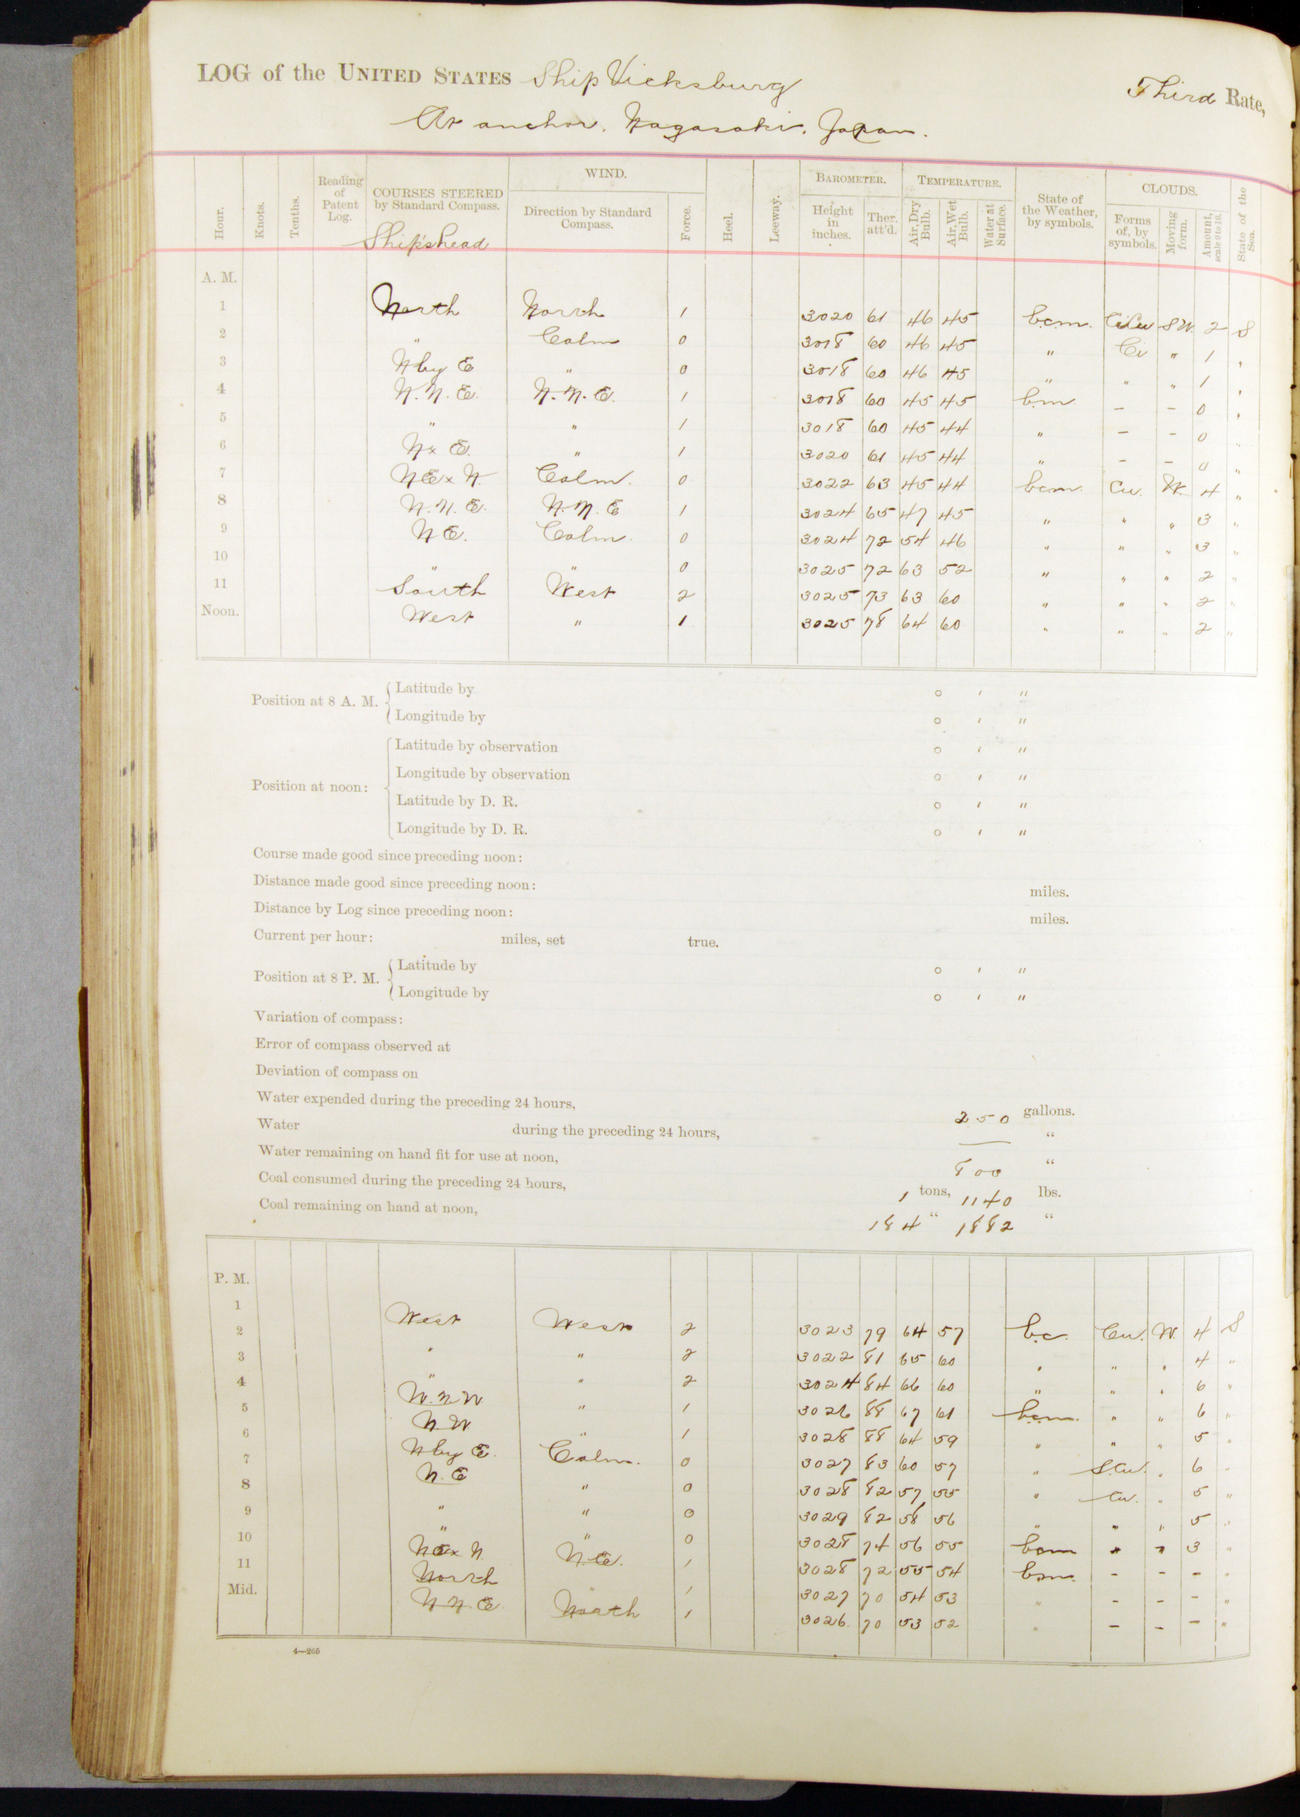 LOG of the UNITED STATES Ship Vicksburg Third Rate,
At anchor. Nagasaki. Japan.
Hour. Knots. Tenths. Reading of Patent Log. COURSES STEERED by Standard Compass. WIND. Direction by Standard Compass. Force. Heel. Leeway. BAROMETER. Height in inches. Ther. att'd. TEMPERATURE. Air, Dry Bulb. Air, Wet Bulb. Water at Surface. State of the Weather, by symbols. CLOUDS. Forms of, by symbols. Moving from. Amount, scale 0 to 10. State of the Sea.
Ship's head
A. M.
1 North North 1 3020 61 46 45 bcm. CiCu SW. 2 S
2 " Calm 0 3018 60 46 45 " Ci " 1 "
3 N by E " 0 3018 60 46 45 " " " 1 "
4 N. N. E. N. N. E. 1 3018 60 45 45 bm – – 0 "
5 " " 1 3018 60 45 44 " – – 0 "
6 N x E. " 1 3020 61 45 44 " – – 0 "
7 NE x N. Calm. 0 3022 63 45 44 bcm Cu. W. 4 "
8 N. N. E. N. N. E 1 3024 65 47 45 " " " 3 "
9 N E. Calm. 0 3024 72 54 46 " " " 3 "
10 " " 0 3025 72 63 52 " " " 2 "
11 South West 2 3025 73 63 60 " " " 2 "
Noon. West " 1 3025 78 64 60 " " " 2 "
Position at 8 A. M. { Latitude by ° ' "
Longitude by ° ' "
Position at noon: { Latitude by observation ° ' "
Longitude by observation ° ' "
Latitude by D. R. ° ' "
Longitude by D. R. ° ' "
Course made good since preceding noon:
Distance made good since preceding noon: miles.
Distance by Log since preceding noon: miles.
Current per hour: miles, set true.
Position at 8 P. M. { Latitude by ° ' "
Longitude by ° ' "
Variation of compass:
Error of compass observed at
Deviation of compass on
Water expended during the preceding 24 hours, 250 gallons.
Water during the preceding 24 hours, — "
Water remaining on hand fit for use at noon, 800 "
Coal consumed during the preceding 24 hours, 1 tons, 1140 lbs.
Coal remaining on hand at noon, 184 " 1882 "
P. M.
1 West West 2 3023 79 64 57 bc. Cu. W. 4 S
2 " " 2 3022 81 65 60 " " " 4 "
3 " " 2 3024 84 66 60 " " " 6 "
4 W. N W " 1 3026 88 67 61 bcm. " " 6 "
5 N. W " 1 3028 88 64 59 " " " 5 "
6 N by E. Calm. 0 3027 83 60 57 " S.Cu. " 6 "
7 N. E " 0 3028 82 57 55 " Cu. " 5 "
8 " " 0 3029 82 58 56 " " " 5 "
9 " " 0 3028 74 56 55 bcm " " 3 "
10 NE x N N. E. 1 3028 72 55 54 bm. – – – "
11 North " 1 3027 70 54 53 " – – – "
Mid. N. N. E North 1 3026 70 53 52 " – – – "
4—265